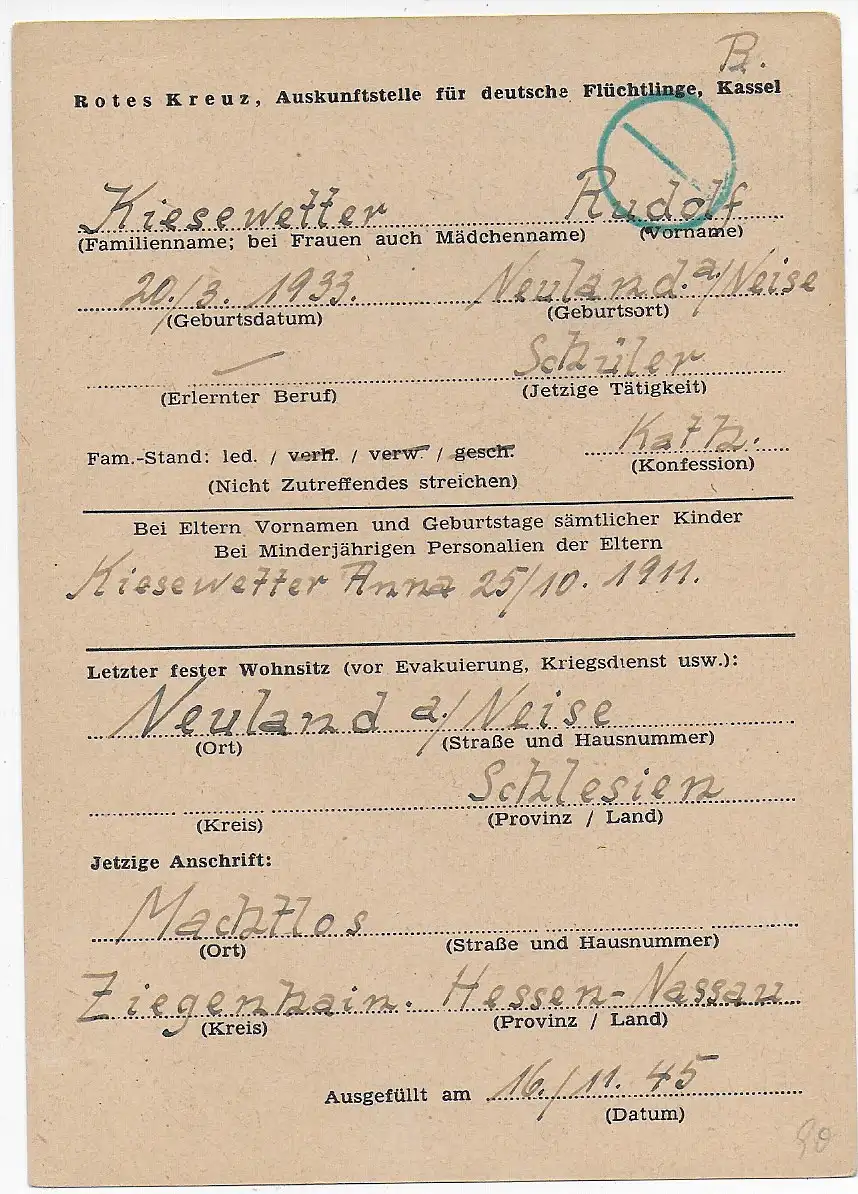 B.
Rotes Kreuz, Auskunftstelle für deutsche Flüchtlinge, Kassel
Kiesewetter Rudolf
(Familienname; bei Frauen auch Mädchenname) (Vorname)
20./3. 1933. Neuland. a./Neise
(Geburtsdatum) (Geburtsort)
— Schüler
(Erlernter Beruf) (Jetzige Tätigkeit)
Fam.-Stand: led. / verh. / verw. / gesch. Kath.
(Nicht Zutreffendes streichen) (Konfession)
Bei Eltern Vornamen und Geburtstage sämtlicher Kinder
Bei Minderjährigen Personalien der Eltern
Kiesewetter Anna 25/10. 1911.
Letzter fester Wohnsitz (vor Evakuierung, Kriegsdienst usw.):
Neuland a./Neise
(Ort) (Straße und Hausnummer)
Schlesien
(Kreis) (Provinz / Land)
Jetzige Anschrift:
Machtlos
(Ort) (Straße und Hausnummer)
Ziegenhain. Hessen-Nassau
(Kreis) (Provinz / Land)
Ausgefüllt am 16./11. 45
(Datum)